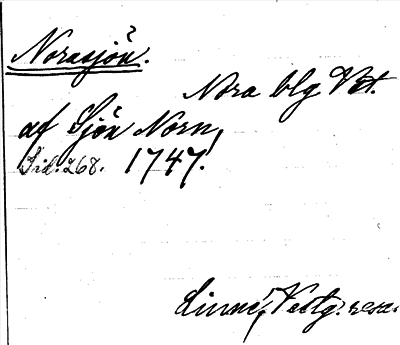 Norasjön.
Nora blg Vstm.
af Sjön Norn,
Sid. 268. 1747.
Linné, Vestg. resa.